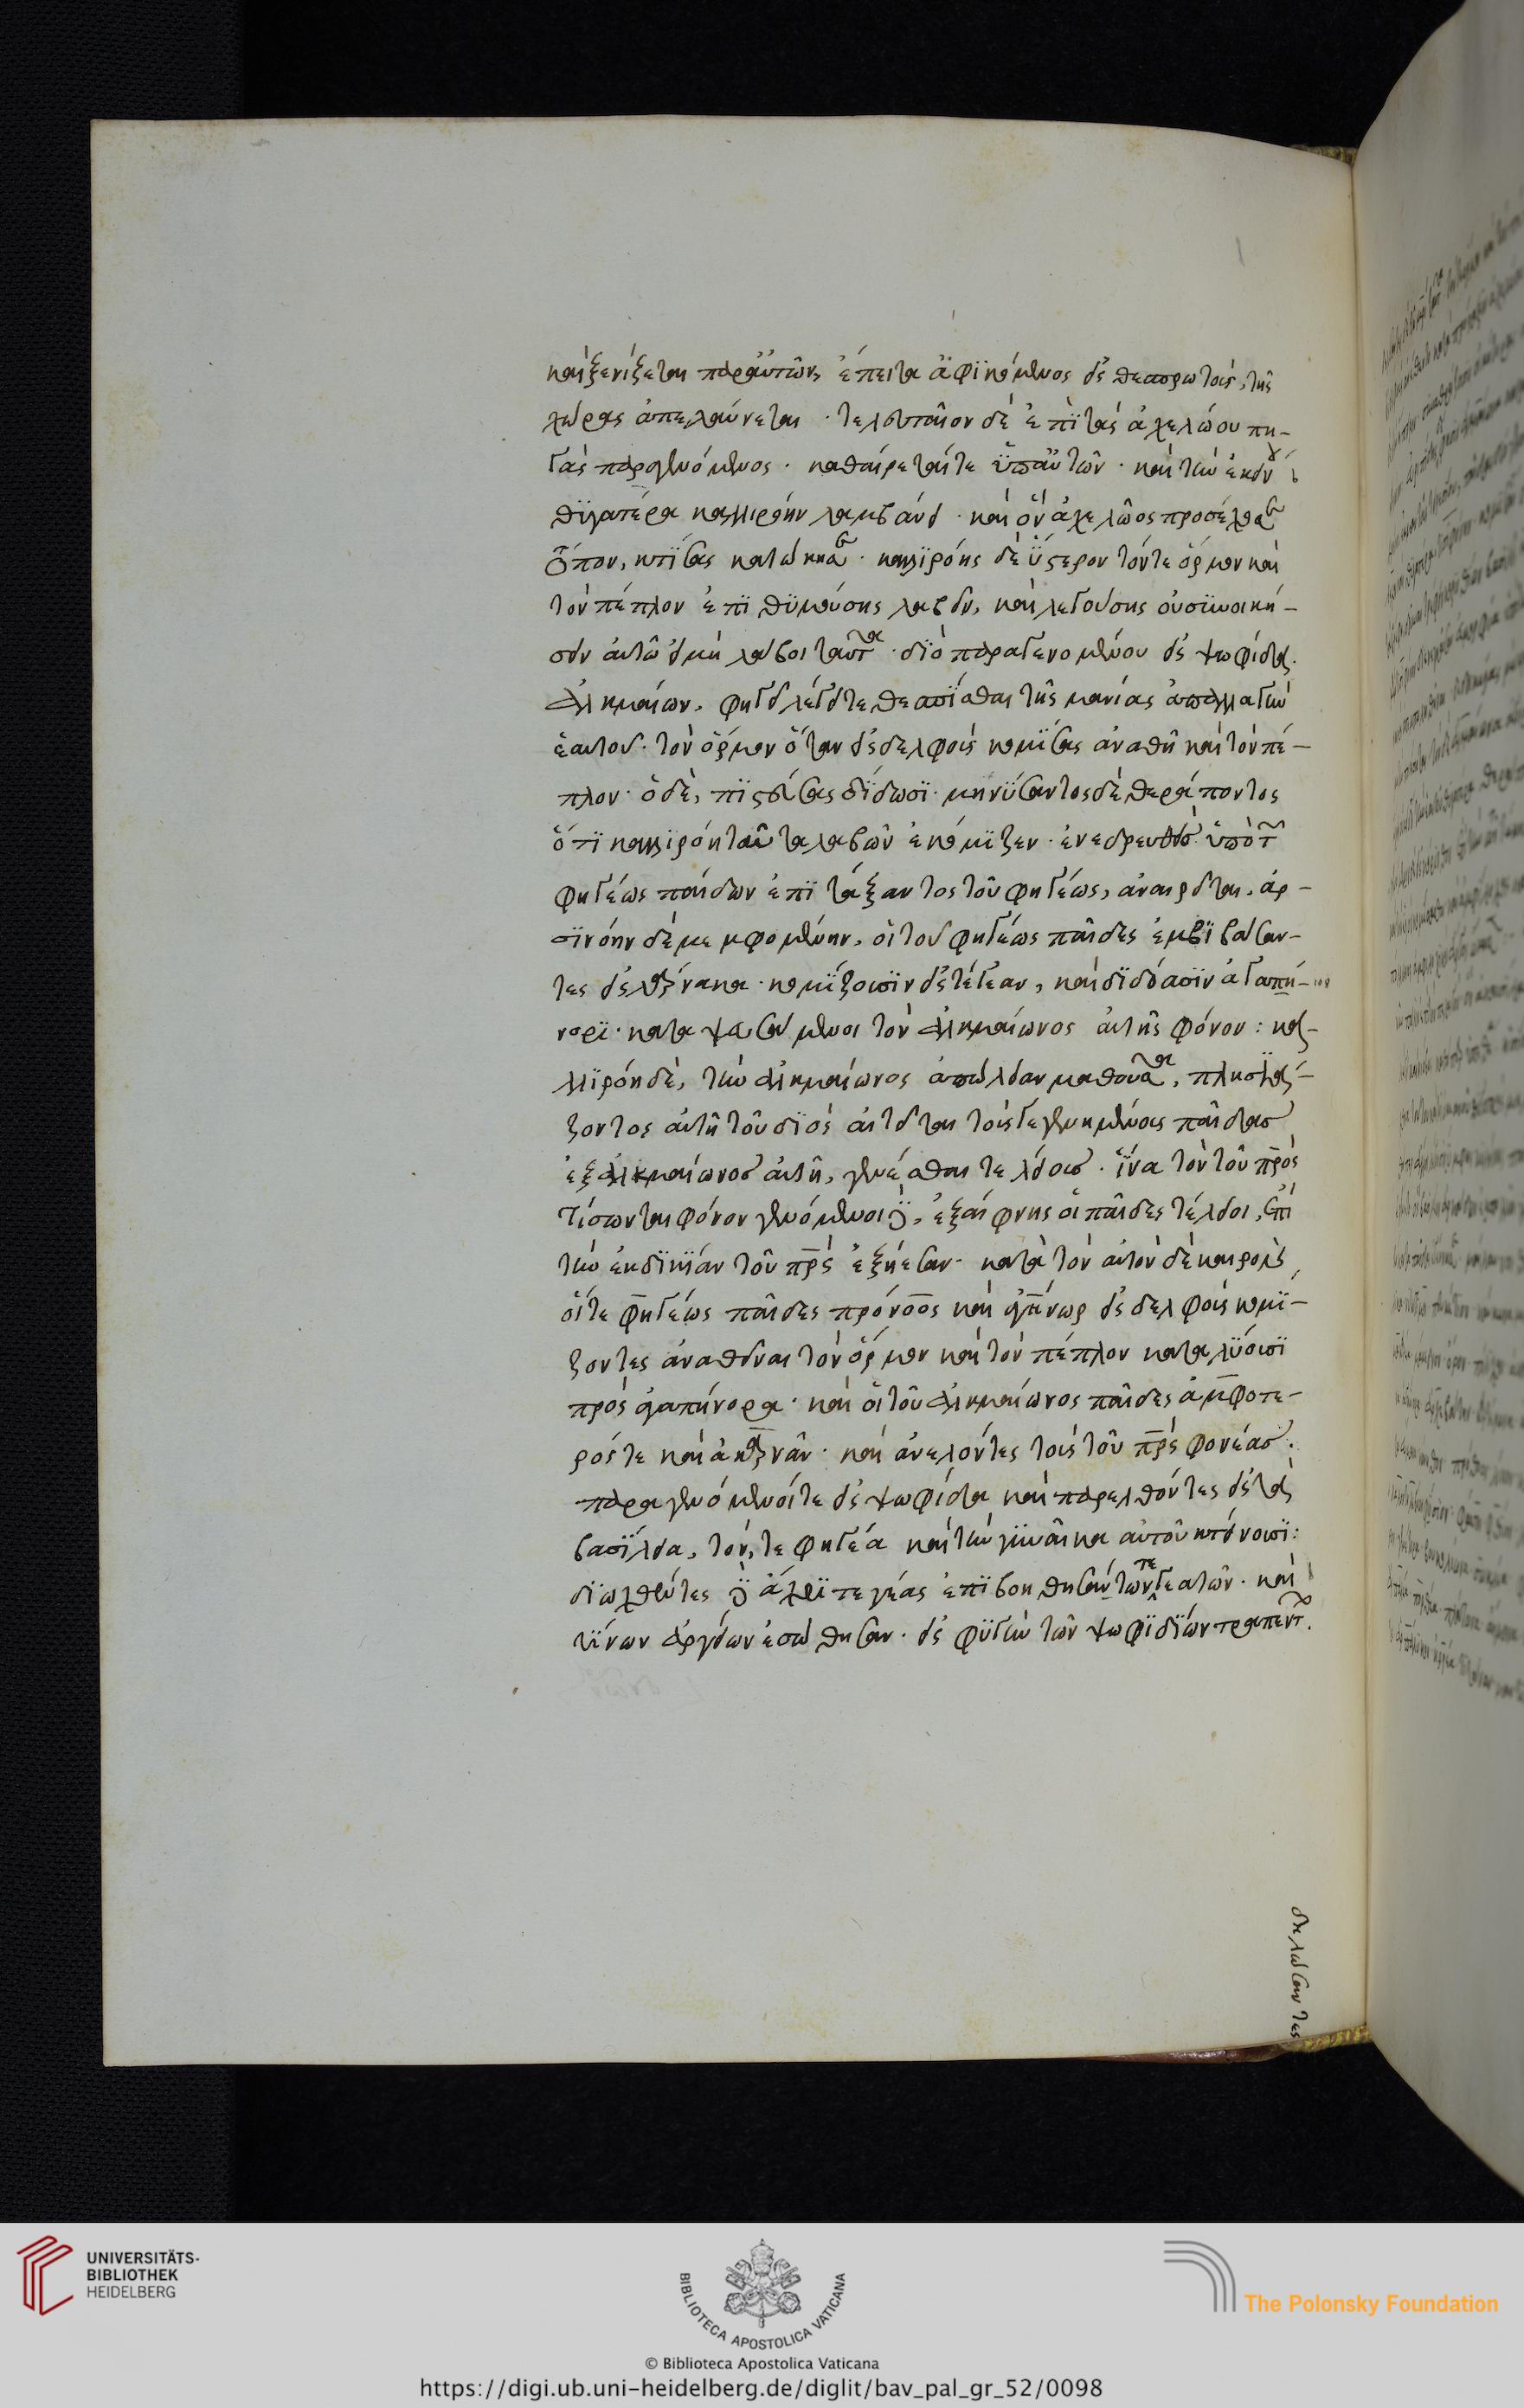 καὶ ξενίζεται παρ' αὐτῶν, ἔπειτα ἀφϊκόμενος εἰς θεσπρωτοὺς, τῆς
χώρας ἀπελαύνεται · τελευταῖον δὲ ἐπὶ τὰς ἀχελώου πη-
γὰς παραγενόμενος · καθαίρεταί τε ὑπ' αὐτῶν · καὶ τὴν ἐκείνου
θυγατέρα καλλιρόην λαμβάνει · καὶ ὃν ἀχελῶος προσέχωσε
τόπον, κτίσας κατώκησε · καλλϊρόης δὲ ὕστερον τόν τε ὅρμον καὶ
τὸν πέπλον ἐπϊθυμούσης λαβεῖν, καὶ λεγούσης οὐ συνοική-
σειν αὐτῶ εἰ μὴ λάβοι ταῦτα · διὸ παραγενομένου εἰς ψωφίδα ·
ἀλκμαίων, φηγεῖ λέγει τεθεσπίσθαι τῆς μανίας ἀπαλλαγὴν
ἑαυτοῦ · τὸν ὅρμον ὅταν εἰς δελφοὺς κομίσας ἀναθῆ καὶ τὸν πέ-
πλον · ὁ δὲ, πϊστεύσας δίδωσϊ · μηνύσαντος δὲ θεράποντος
ὅτι καλλϊρόη ταῦτα λαβὼν ἐκόμιζεν · ἐνεδρευθεὶς ὑπὸ τῶν
φηγέως παίδων ἐπϊτάξαντος τοῦ φηγέως, ἀναιρεῖται, ἀρ-
σϊνόην δὲ μεμφομένην, οἱ τοῦ φηγέως παῖδες ἐμβϊβάσαν-
τες εἰς λάρνακα · κομίζουσϊν εἰς τέγεαν, καὶ δϊδόασϊν ἀγαπή-
νορϊ · καταψευσάμενοι τὸν ἀλκμαίωνος αὐτῆς φόνον : καλ-
λϊρόη δὲ, τὴν ἀλκμαίωνος ἀπώλειαν μαθοῦσα, πλησϊά-
ζοντος αὐτῆ τοῦ διὸς αἰτεῖται τοὺς γεγενημένους παῖδας
ἐξ ἀλκμαίωνος αὐτῆ, γενέσθαι τελείους · ἵνα τὸν τοῦ πρς
τίσωνται φόνον γενόμενοι δὲ, ἐξαίφνης οἱ παῖδες τέλειοι, ἐπὶ
τὴν ἐκδικίαν τοῦ πρς ἐξήεσαν · κατὰ τὸν αὐτὸν δὲ καιρὸν,
οἵ τε φηγέως παῖδες πρόνοος καὶ ἀγήνωρ εἰς δελφοὺς κομϊ-
ζοντες ἀναθεῖναι τὸν ὅρμον καὶ τὸν πέπλον καταλύουσϊ
πρὸς ἀγαπήνορα · καὶ οἱ τοῦ ἀλκμαίωνος παῖδες ἀμφοτε-
ρός τε καὶ ἀκαρνάν · καὶ ἀνελόντες τοὺς τοῦ πρς φονέας ·
παραγενόμενοί τε εἰς ψωφίδα καὶ παρελθόντες εἰς τὰ
βασίλεια, τόν, τε φηγέα καὶ τὴν γυναῖκα αὐτοῦ κτείνουσϊ :
διωχθέντες δὲ ἄχρϊ τεγέας ἐπϊβοηθησάντων τεγεατῶν · καὶ
τινων ἀργείων ἐσώθησαν · εἰς φυγὴν τῶν ψωφιδίων τραπέντων.
δηλώσαντες
UNIVERSITÄTS-
BIBLIOTHEK
HEIDELBERG
BIBLIOTECA APOSTOLICA VATICANA
© Biblioteca Apostolica Vaticana
The Polonsky Foundation
https://digi.ub.uni-heidelberg.de/diglit/bav_pal_gr_52/0098